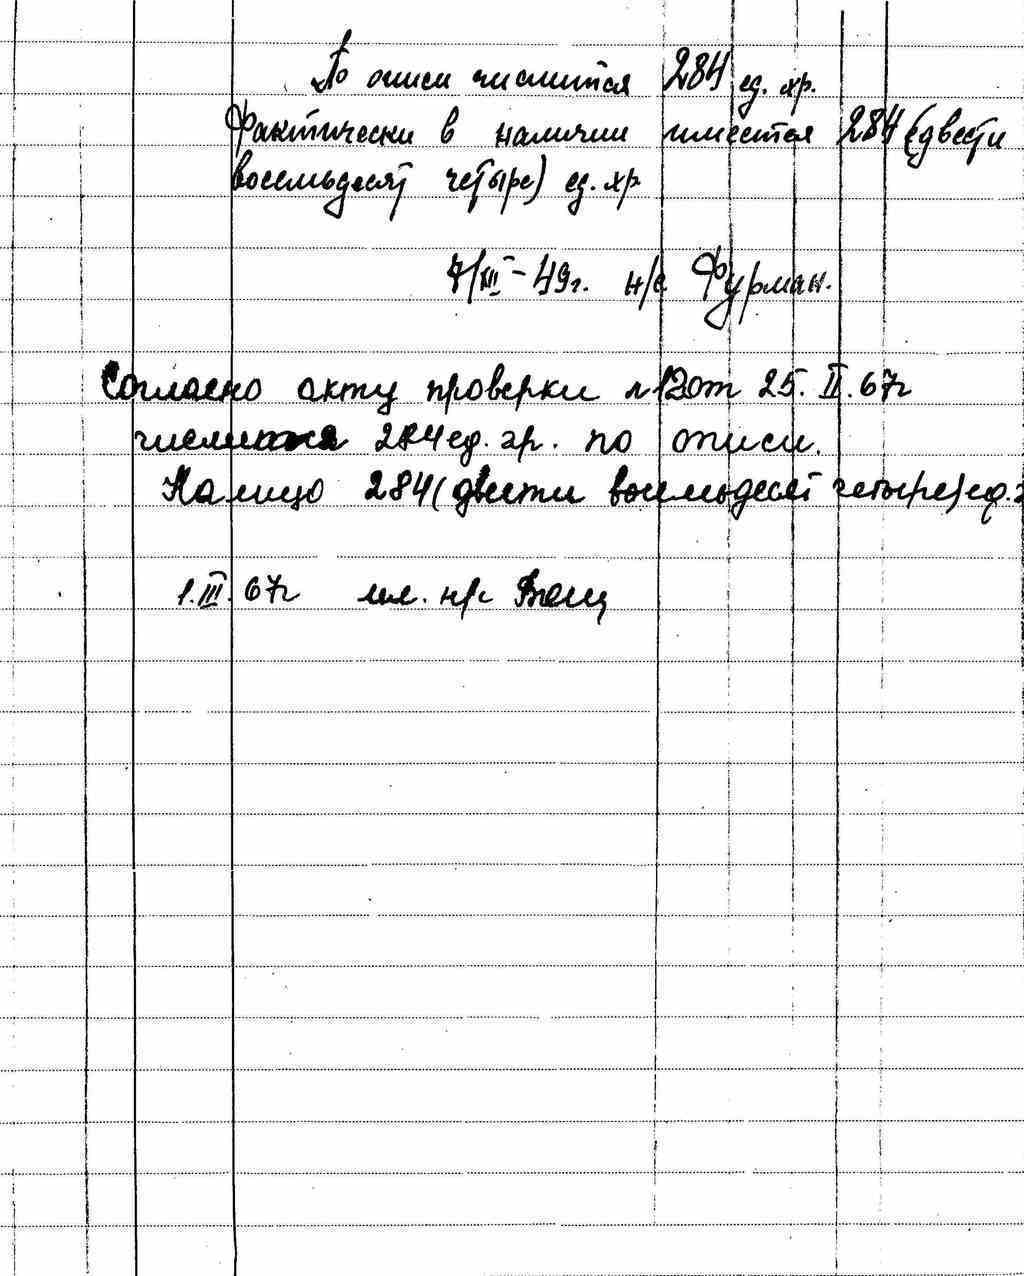 По описи числится 284 ед. хр.
Фактически в наличии имеется 284 (двести
восемьдесят четыре) ед. хр
7/III-49г. н/с Фурман.
Согласно акту проверки №12 от 25.II.67г
числится 284 ед. хр. по описи.
Налицо 284 (двести восемьдесят четыре) ед.
1.III.67г мл. н/с